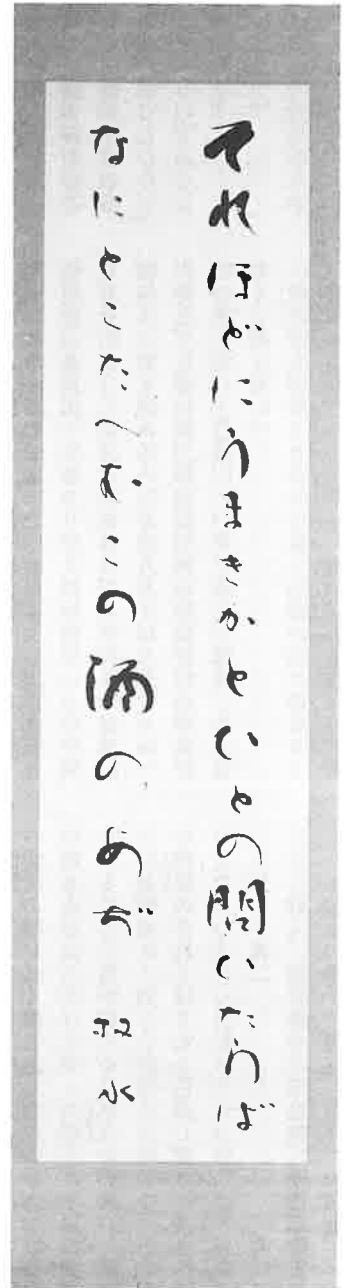 それほどにうまきかとひとの問ひたらば
なにとこたへむこの酒のあぢ 牧水